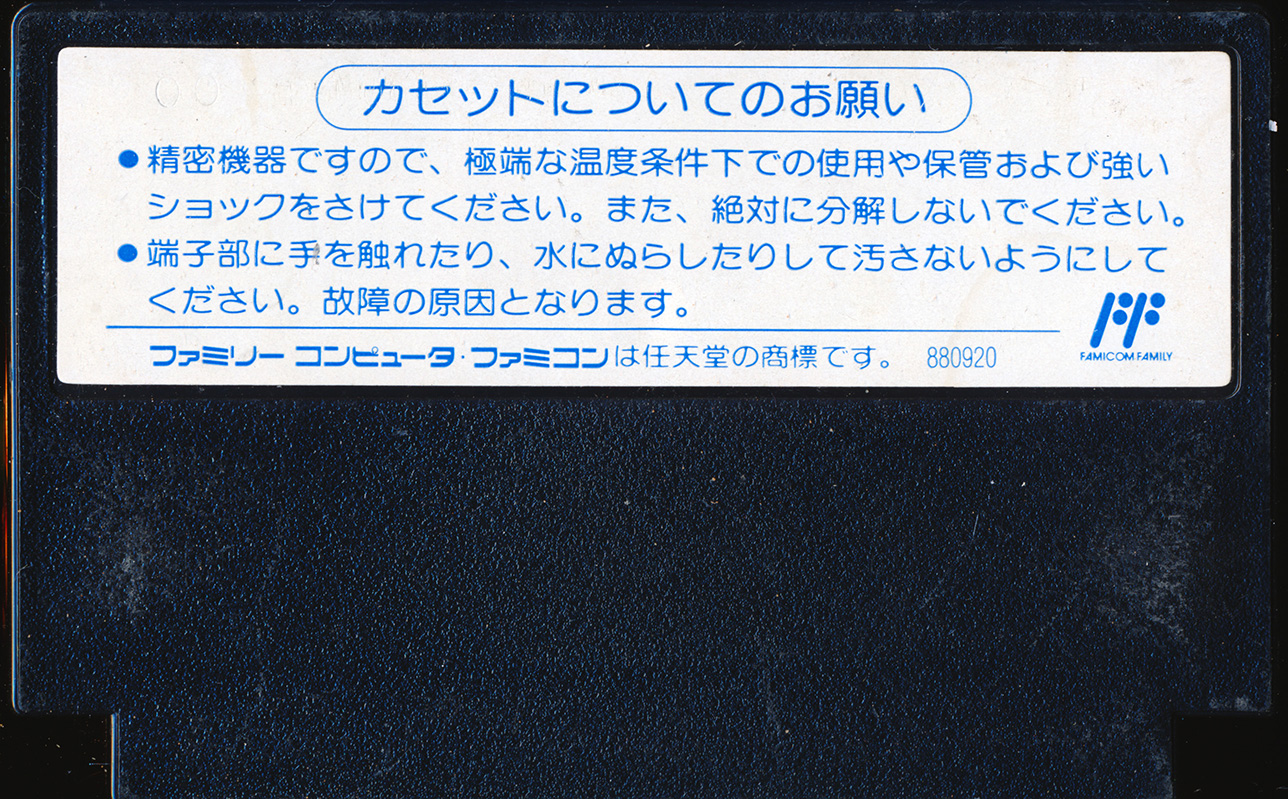 カセットについてのお願い
●精密機器ですので、極端な温度条件下での使用や保管および強い
ショックをさけてください。また、絶対に分解しないでください。
●端子部に手を触れたり、水にぬらしたりして汚さないようにして
ください。故障の原因となります。
FAMICOM FAMILY
ファミリー コンピュータ・ファミコンは任天堂の商標です。 880920